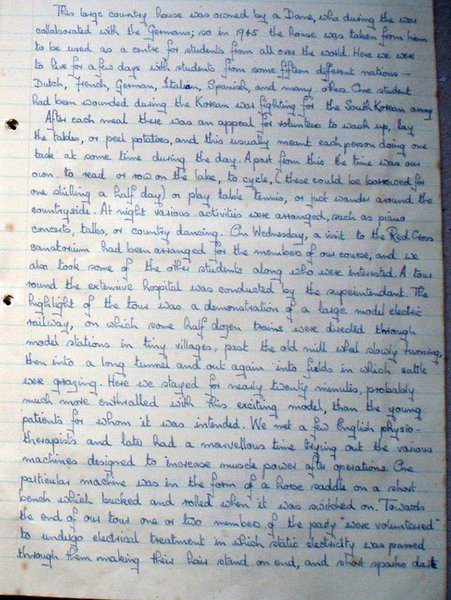 This large country house was owned by a Dane, who during the war
collaborated with the Germans; so in 1945 the house was taken from him
to be used as a centre for students from all over the world. Here we were
to live for a few days with students from some fifteen different nations —
Dutch, French, German, Italian, Spanish, and many others. One student
had been wounded during the Korean war fighting for the South Korean army
After each meal there was an appeal for volunteers to wash up, lay
the tables, or peel potatoes, and this usually meant each person doing one
task at some time during the day. Apart from this the time was our
own, to read or row on the lake, to cycle, (these could be borrowed for
one shilling a half day) or play table tennis, or just wander around the
countryside. At night various activities were arranged, such as piano
concerts, talks, or country dancing. On Wednesday, a visit to the Red Cross
sanatorium had been arranged for the members of our course, and we
also took some of the other students along who were interested. A tour
round the extensive hospital was conducted by the superintendant. The
highlight of the tour was a demonstration of a large model electric
railway, on which some half dozen trains were directed through
model stations in tiny villages, past the old mill wheel slowly turning,
then into a long tunnel and out again into fields in which cattle
were grazing. Here we stayed for nearly twenty minutes, probably
much more enthralled with this exciting model, than the young
patients for whom it was intended. We met a few English physio-
therapists and later had a marvellous time trying out the various
machines designed to increase muscle power after operations. One
particular machine was in the form of a horse saddle on a short
bench which bucked and rolled when it was switched on. Towards
the end of our tour one or two members of the party "were volunteered"
to undergo electrical treatment in which static electricity was passed
through them making their hair stand on end, and short sparks dart